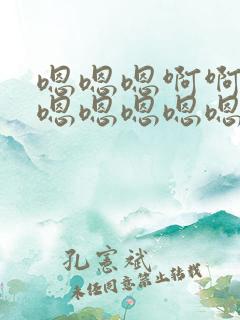 嗯嗯嗯啊啊
嗯嗯嗯嗯嗯
孔宪斌
未经同意禁止转载